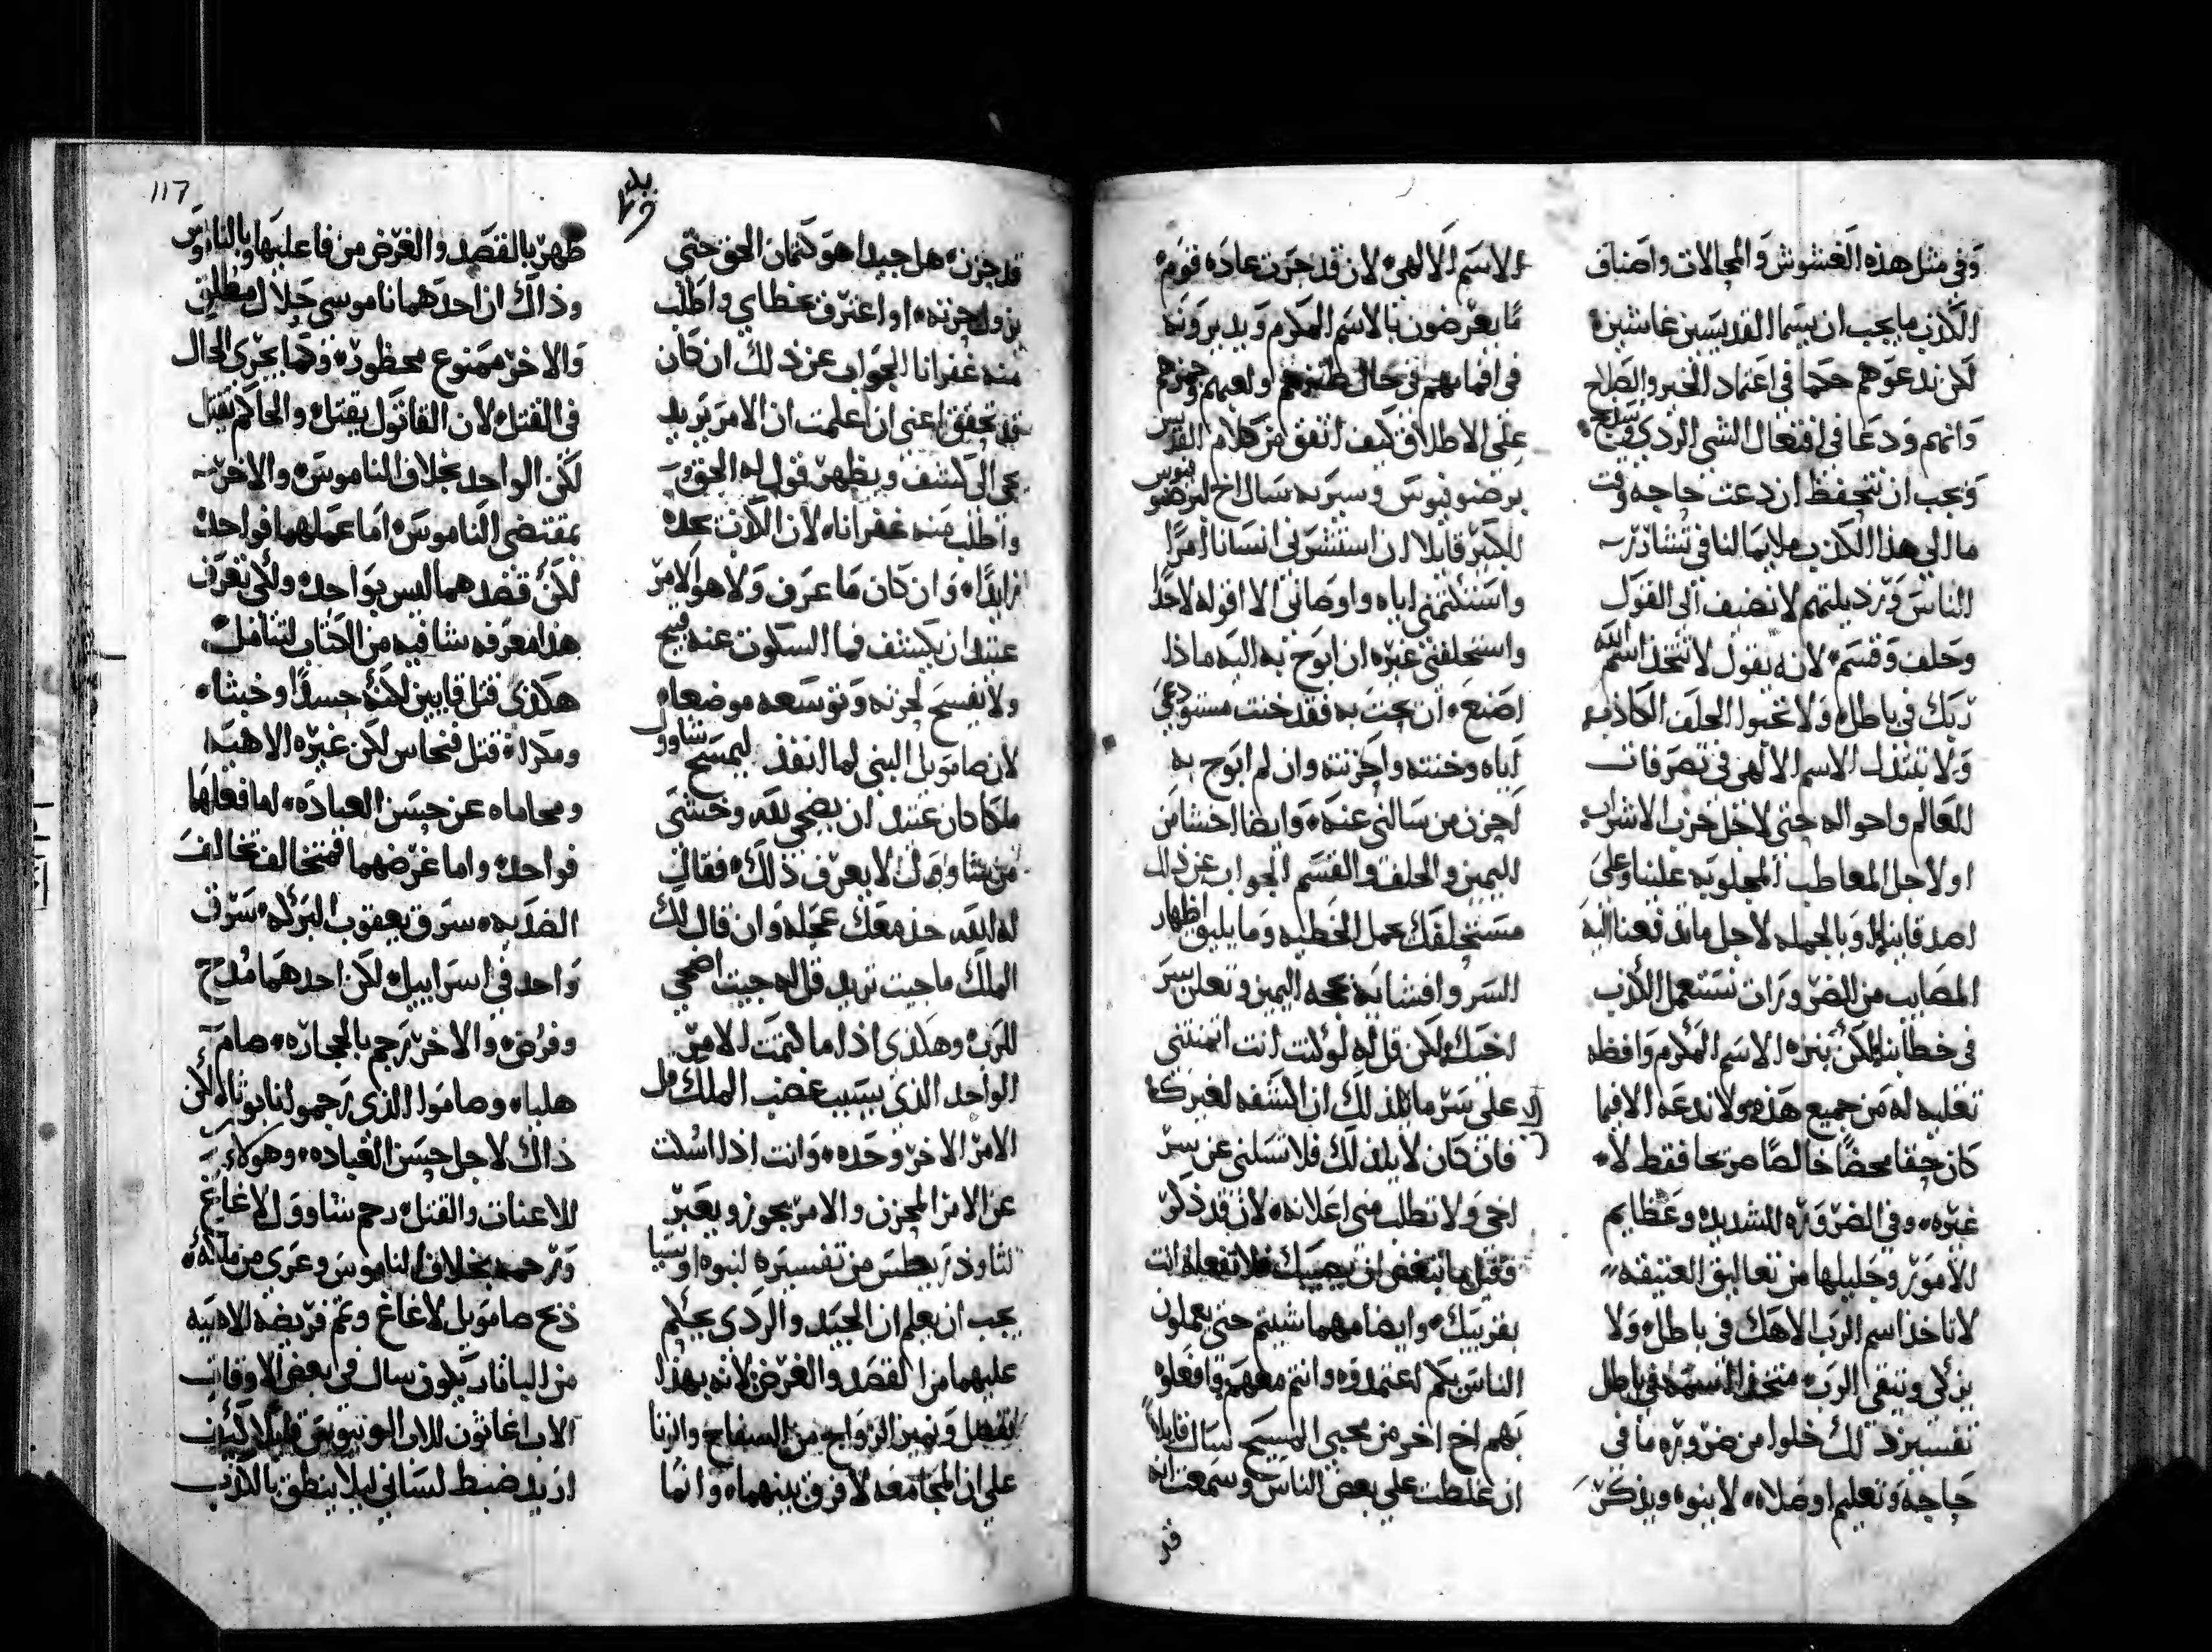 وفي مثل هذه الغشوش والمحالات واصناف
الكذب ما يجب ان يسما القديسين غاشين
لكن ندعوهم حكما في اعتماد الخير والصلاح
وانهم ودعا في افتعال الشي الردي وسدج
ويجب ان نتحفظ ان دعت حاجه وقت
ما الي هذا الكذب ملايما لنا في تشاذر
الناس ورذيلتهم لا نضيف الى القول
وحلف وقسم لانه يقول لا تتخد اسم الله
ربك في باطل ولا تحبوا الحلف الكاذب
ولا تبتدل الاسم الالهي في تصرفات
العالم واحواله حتي لاجل حزب الاشراب
او لاجل المعاطب المجلوبه علينا وعلى
اصدقاينا وبالجمله لاجل ما تدفعنا اليه
المصايب من الضرورات نستعمل الكذب
في خطابنا لكن ننزه الاسم المكرم وافظه
تغليه له من جميع هذه ولا ندعه الا فيما
كان حقا محضا خالصا صريحا فقط لا
غيره وفي الضروره الشديده وعظايم
الامور وجليلها من تعاليق العتيقه
لا تاخذ اسم الرب الاهك في باطل ولا
يزكي وينقي الرب متخذ اسمه في باطل
تفسير ذلك خلوا من ضروره ما في
حاجه وتعليم او صلاه لا ينوه ويذكر
الاسم الالهي لان قد جرت عاده قوم
ما يعرضون بالاسم المكرم ويديرونه
في افمامهم في حال طنزهم او لعبهم وجزهم
علي الاطلاق كيف اتفق من كلام القديس
برصنوفيوس وسيرته سال اخ لبرصنوفيوس
الكبير قايلا ان استشرني انسانا امرا
واستكتمني اياه واوصاني الا اقوله لاحد
واستحلفني غيره ان ابوح به اليه ماذا
اصنع ان بحت به فقد خنت مستودعي
اياه وخنته واحزنته وان لم ابوح به
احزن من سالني عنه وايضا اخشا من
اليمين والحلف والقسم الجواب عن ذاك
مستحلفك يحمل الخطيه وما يليق اظهار
السر وافشايه بحجه اليمين وتعلن سر
اخيك لكن قل له لو كنت انت ايتمنتني
علي سر ما يلذ لك ان اكشفه لغيرك
فان كان لا يلذ لك فلا تسلني عن سر
اخي ولا تطلب مني اعلانه لان قد ذكر
وقيل ما تبغض ان يصيبك فلا تفعله انت
بقريبك وايضا مهما شيتم حتى يعملون
الناس بكم اعتمدوه وانتم معهم وافعلوه
بهم اخ اخر من محبي المسيح سال قايلا
ان غلطت علي بعض الناس وسمعت انه
قد
117
قد حزن هل جيدا هو كتمان الحق حتي
يزول حزنه او اعترف بخطاي واطلب
منه غفرانا الجواب عن ذلك ان كان
قد تحقق اعني ان اعلمت ان الامر يريد
يجي الى كشف ويظهر قول له الحق
واطلب منه غفرانا لان الكذب يجده
زايدا وان كان ما عرف ولا هو الامر
عتيد ان يكشف فما السكوت عنه قبيح
ولا يفسح لحزنه وتوسعه موضعا
لان صامويل النبي لما انفذ ليمسح شاوول
ملكا كان عتيد ان يضحي لله وخشى
من شاوول لا يعرف ذلك فقال
له الله خذ معك عجله وان قال لك
الملك ما جيت تريد قل له جيت اضحي
للرب وهكذى اذا ما كتمت الامر
الواحد الذي بسبب غضب الملك قل
الامر الاخر وحده وانت اذا اسكت
عن الامر المحزن والامر يجوز ويعبر
لثاوذريطس من تفسيره لنبوه اوسيا
يجب ان يعلم ان الجيد والردى يحكم
عليهما من القصد والغرض لانه بهذا
انفصل وتميز الزواج من السفاح والزنا
علي ان المجامعه لا فرق بينهما وانما
ظهر بالقصد والغرض من فاعليها وبالناموس
وذاك ان احدهما ناموسي حلال مطلق
والاخر ممنوع محظور وكما يجرى الحال
في القتل لان القاتول يقتل والحاكم يقتل
لكن الواحد بخلاف الناموس والاخر
بمقتضي الناموس اما عملهما فواحد
لكن قصدهما ليس بواحد ولكي تعرف
هذا معرفه شافيه من الكتاب لتتامل
هكذى قتل قايين لكنه حسدا وخبثا
ومكرا قتل فنحاس لكن غيره الاهيه
ومحاماه عن حسن العباده اما فعلهما
فواحد واما غرضهما فمتخالف تخالف
الضديه سرق يعقوب البركه سرق
واحد في اسراييل لكن احدهما مدح
وفرض والاخر رجم بالحجاره صام
هلياه وصاموا الذى رجموا نابوثا لكن
ذاك لاجل حسن العباده وهوكاء
للاعنات والقتل رحم شاوول لاغاغ
ورحمه بخلاف الناموس وعري من ملكه
ذبح صامويل لاغاغ وتمم فريضه الاهيه
من الباناريكون سال في بعض الاوقات
الاب اغاثون للاب الونيوس قايلا كيف
اريد ضبط لساني ليلا ينطق بالكذب